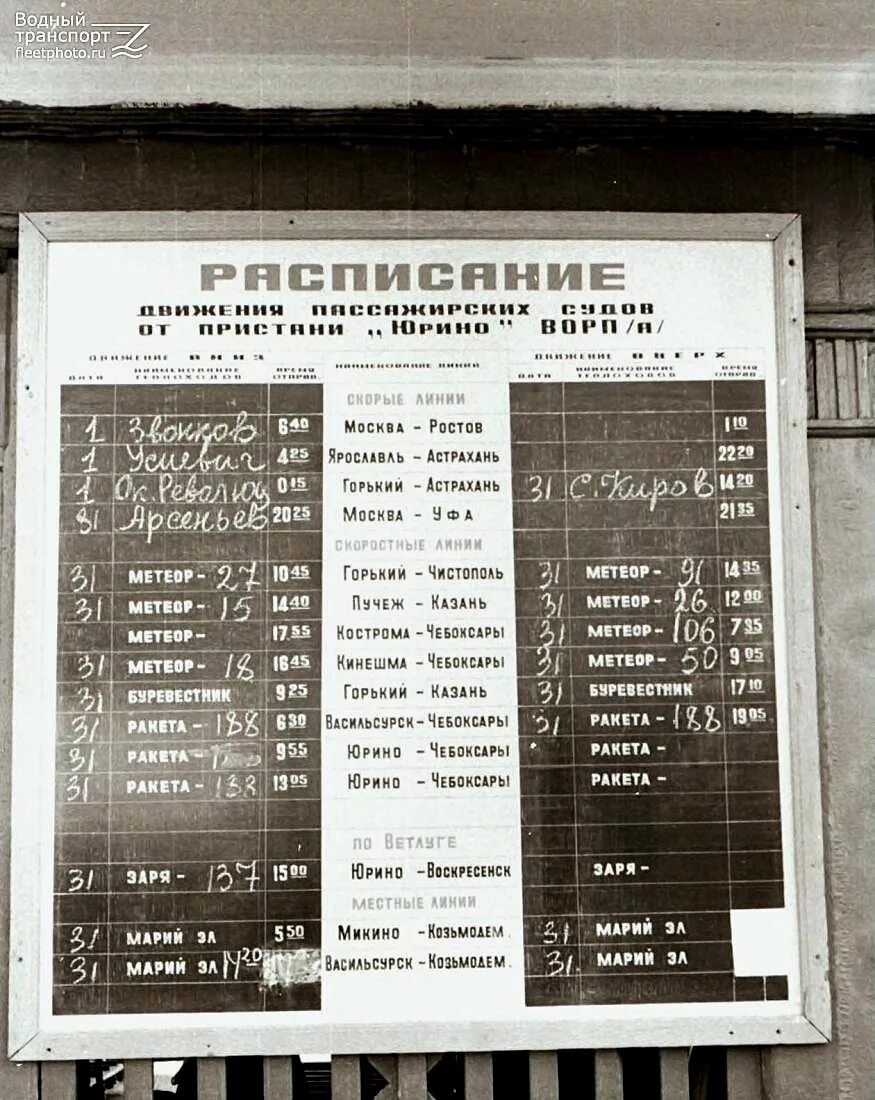 Водный
транспорт
fleetphoto.ru
РАСПИСАНИЕ
ДВИЖЕНИЯ ПАССАЖИРСКИХ СУДОВ
ОТ ПРИСТАНИ „ЮРИНО" ВОРП/а/
ДВИЖЕНИЕ ВНИЗ ДВИЖЕНИЕ ВВЕРХ
ДАТА НАИМЕНОВАНИЕ ТЕПЛОХОДОВ ВРЕМЯ ОТПРАВ. НАИМЕНОВАНИЕ ЛИНИИ ДАТА НАИМЕНОВАНИЕ ТЕПЛОХОДОВ ВРЕМЯ ОТПРАВ.
СКОРЫЕ ЛИНИИ
1 Звонков 6 40 МОСКВА - РОСТОВ 1 10
1 Усиевич 4 25 ЯРОСЛАВЛЬ - АСТРАХАНЬ 22 20
1 Ок. Революц 0 15 ГОРЬКИЙ - АСТРАХАНЬ 31 С. Киров 14 20
31 Арсеньев 20 25 МОСКВА - УФА 21 35
СКОРОСТНЫЕ ЛИНИИ
31 МЕТЕОР - 27 10 45 ГОРЬКИЙ - ЧИСТОПОЛЬ 31 МЕТЕОР - 91 14 35
31 МЕТЕОР - 15 14 40 ПУЧЕЖ - КАЗАНЬ 31 МЕТЕОР - 26 12 00
МЕТЕОР - 17 55 КОСТРОМА - ЧЕБОКСАРЫ 31 МЕТЕОР - 106 7 35
31 МЕТЕОР - 18 16 45 КИНЕШМА - ЧЕБОКСАРЫ 31 МЕТЕОР - 50 9 05
31 БУРЕВЕСТНИК 9 25 ГОРЬКИЙ - КАЗАНЬ 31 БУРЕВЕСТНИК 17 10
31 РАКЕТА - 188 6 30 ВАСИЛЬСУРСК - ЧЕБОКСАРЫ 31 РАКЕТА - 188 19 05
31 РАКЕТА - 9 55 ЮРИНО - ЧЕБОКСАРЫ РАКЕТА -
31 РАКЕТА - 138 13 05 ЮРИНО - ЧЕБОКСАРЫ РАКЕТА -
ПО ВЕТЛУГЕ
31 ЗАРЯ - 137 15 00 ЮРИНО - ВОСКРЕСЕНСК ЗАРЯ -
МЕСТНЫЕ ЛИНИИ
31 МАРИЙ ЭЛ 5 50 МИКИНО - КОЗЬМОДЕМ. 31 МАРИЙ ЭЛ
31 МАРИЙ ЭЛ 14 20 ВАСИЛЬСУРСК - КОЗЬМОДЕМ. 31 МАРИЙ ЭЛ